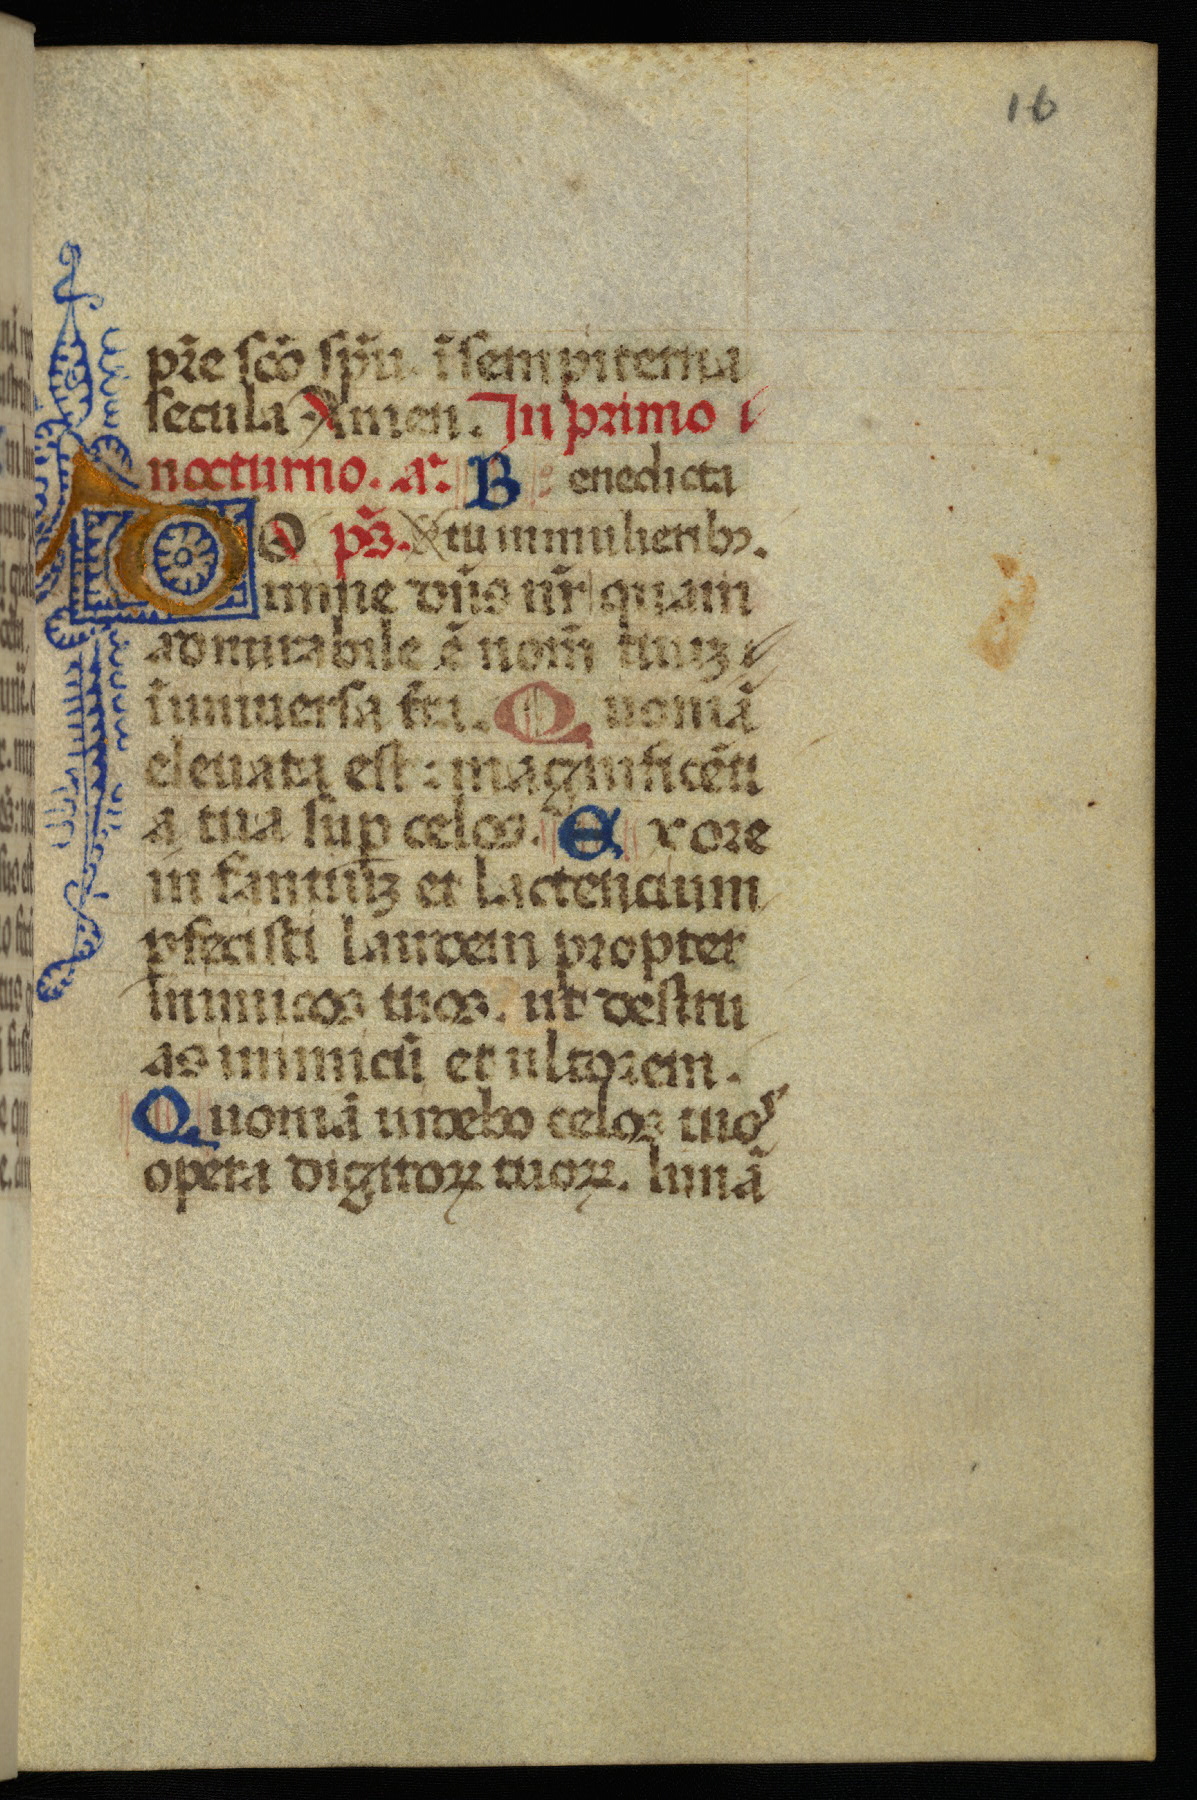 16
pr̄e sc̄o sp̄u. ī sempiterna
secula Amen. In primo
nocturno. a͞. B enedicta
O ps̄. tu in mulieribꝫ.
D mine dn̄s nr̄ quam
admirabile ē nom̄ tuuꝫ
ī uniuersa tr̄a. Q uoniā
eleuata est: magnificēti
a tua sup celos. E x ore
in fantiuꝫ et lactencium
pfecisti laudem propter
inimicos tuos. ut destru
as inimicū et ultorem.
Quoniā uidebo celos tuos
opera digitoꝝ tuoꝝ. lunā